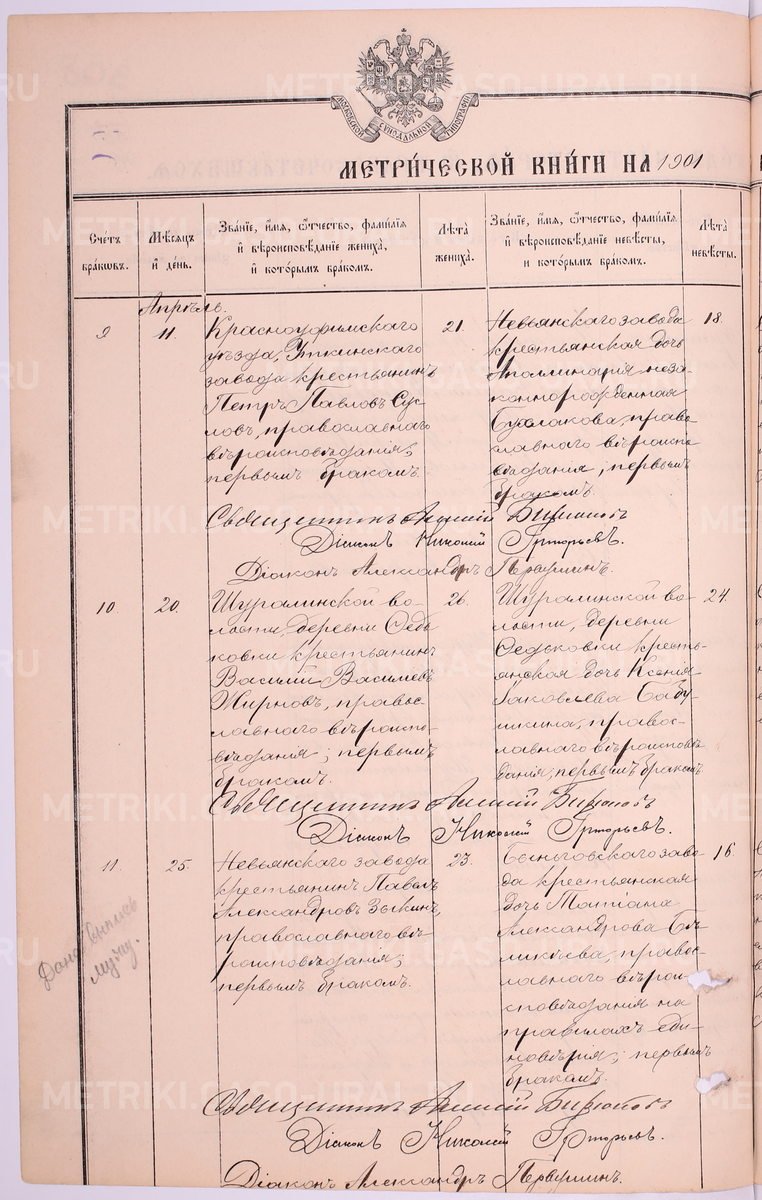 МОСКОВСКОЙ СУНОДАЛЬНОЙ ТИПОГРАФІИ
МЕТРИ́ЧЕСКОЙ КНИ́ГИ НА 1901
Сче́тъ бра́кѡвъ.
Мѣ́сяцъ и҆ де́нь.
Зва́нїе, и҆́мя, ѻ҆́тчество, фами́лїя и҆ вѣроисповѣ́данїе жениха̀, и҆ кото́рымъ бра́комъ.
Лѣта̀ жениха̀.
Зва́нїе, и҆́мя, ѻ҆́тчество, фами́лїя и҆ вѣроисповѣ́данїе невѣ́сты, и кото́рымъ бра́комъ.
Лѣта̀ невѣ́сты.
Апрѣль.
9
11.
Красноуфимскаго
уѣзда, Уткинскаго
завода крестьянинъ
Петръ Павловъ Сус-
ловъ, православнаго
вѣроисповѣданія;
первымъ бракомъ.
21.
Невьянскаго завода
крестьянская дочь
Аполлинарія неза-
коннорожденная
православнаго
славнаго вѣроиспо-
вѣданія, первымъ
бракомъ.
18.
Священникъ
Діаконъ Николай Григорьевъ.
Діаконъ Александръ Первушинъ.
10.
20.
Шуралинской во-
лости, деревни Седь-
ковки крестьянинъ
Василий Васильевъ
Жирновъ, правос-
лавнаго вѣроиспо-
вѣданія; первымъ
бракомъ.
26.
Шуралинской во-
лости, деревни
Седьковки кресть-
янская дочь Ксенія
Іаковлева Бабу-
шкина, правос-
лавнаго вѣроисповѣ-
данія, первымъ бракомъ.
24.
Священникъ
Діаконъ Николай Григорьевъ.
11.
25.
Невьянскаго завода
крестьянинъ Павелъ
Александровъ Зыкинъ,
православнаго вѣ-
роисповѣданія;
первымъ бракомъ.
23.
Быньговскаго заво-
да крестьянская
дочь Татіана
Александрова
православнаго вѣрои-
сповѣданія на
правилахъ еди-
новѣрія; первымъ
бракомъ.
16.
Дана выпись
мужу.
Священникъ
Діаконъ Николай Григорьевъ.
Діаконъ Александръ Первушинъ.
METRIKI.GASO-URAL.RU